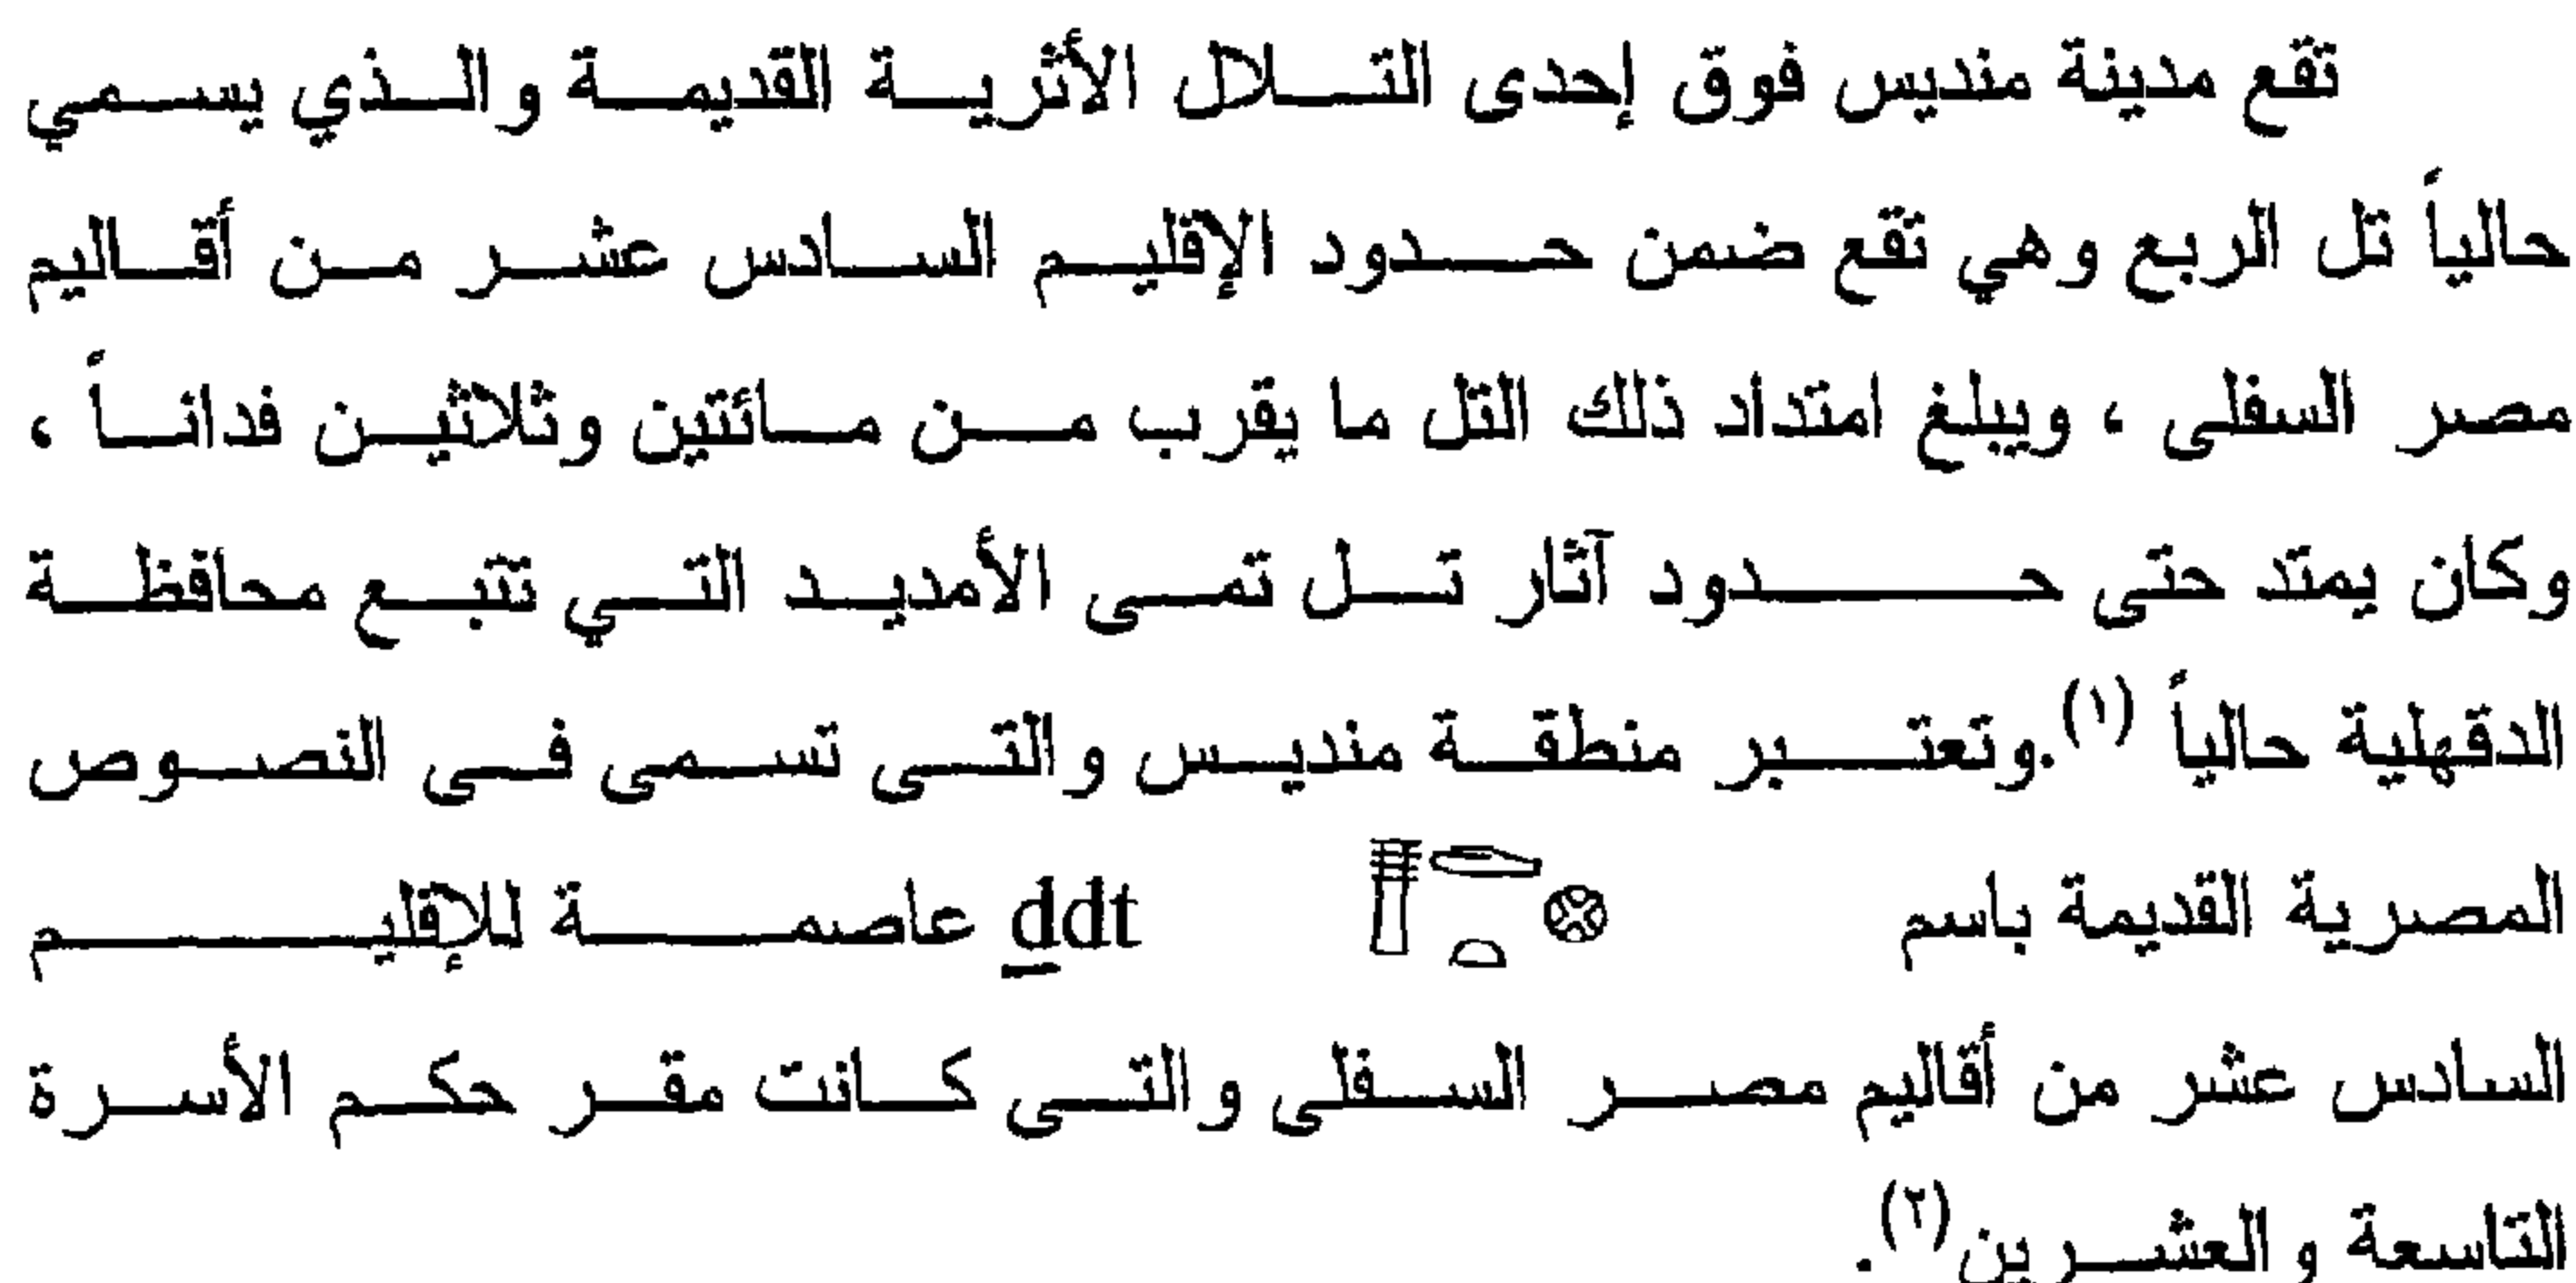 تقع مدينة منديس فوق إحدى التلال الأثرية القديمة والذي يسمي
حالياً تل الربع وهي تقع ضمن حدود الإقليم السادس عشر من أقاليم
مصر السفلى ، ويبلغ امتداد ذلك التل ما يقرب من مائتين وثلاثين فداناً ،
وكان يمتد حتى حدود آثار تل تمى الأمديد التي تتبع محافظة
الدقهلية حالياً (١).وتعتبر منطقة منديس والتى تسمى فى النصوص
المصرية القديمة باسم ḏdt عاصمة للإقليم
السادس عشر من أقاليم مصر السفلى والتى كانت مقر حكم الأسرة
التاسعة والعشرين(٢).